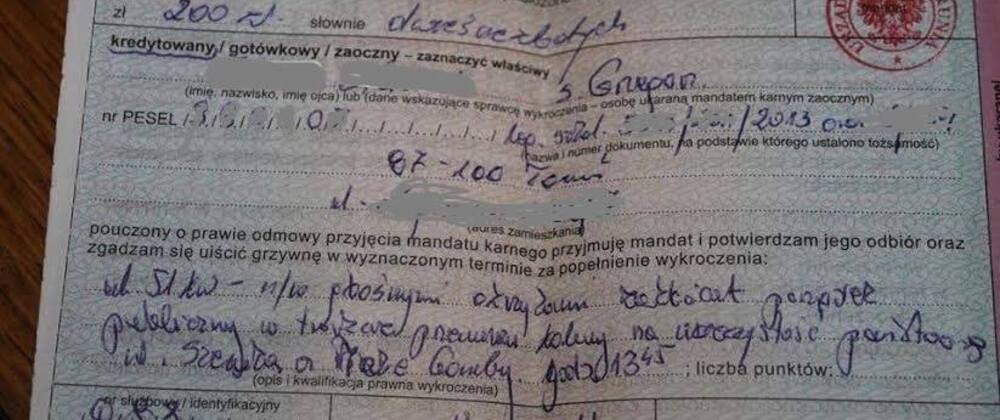 zł 200 zł. słownie dwieście złotych
kredytowany / gotówkowy / zaoczny – zaznaczyć właściwy
s. Grzegorz
(imię, nazwisko, imię ojca) lub (dane wskazujące sprawcę wykroczenia – osobę ukaraną mandatem karnym zaocznym)
nr PESEL leg. szkol. /2013
(nazwa i numer dokumentu, na podstawie którego ustalono tożsamość)
87-100 Toruń
ul.
(adres zamieszkania)
pouczony o prawie odmowy przyjęcia mandatu karnego przyjmuję mandat i potwierdzam jego odbiór oraz
zgadzam się uiścić grzywnę w wyznaczonym terminie za popełnienie wykroczenia:
51 kw – n/w głośnymi okrzykami zakłócał porządek
publiczny w trakcie przemarszu kolumny na uroczystość
ul. Szeroka godz 13 45 ; liczba punktów:
(opis i kwalifikacja prawna wykroczenia)
nr służbowy / identyfikacyjny